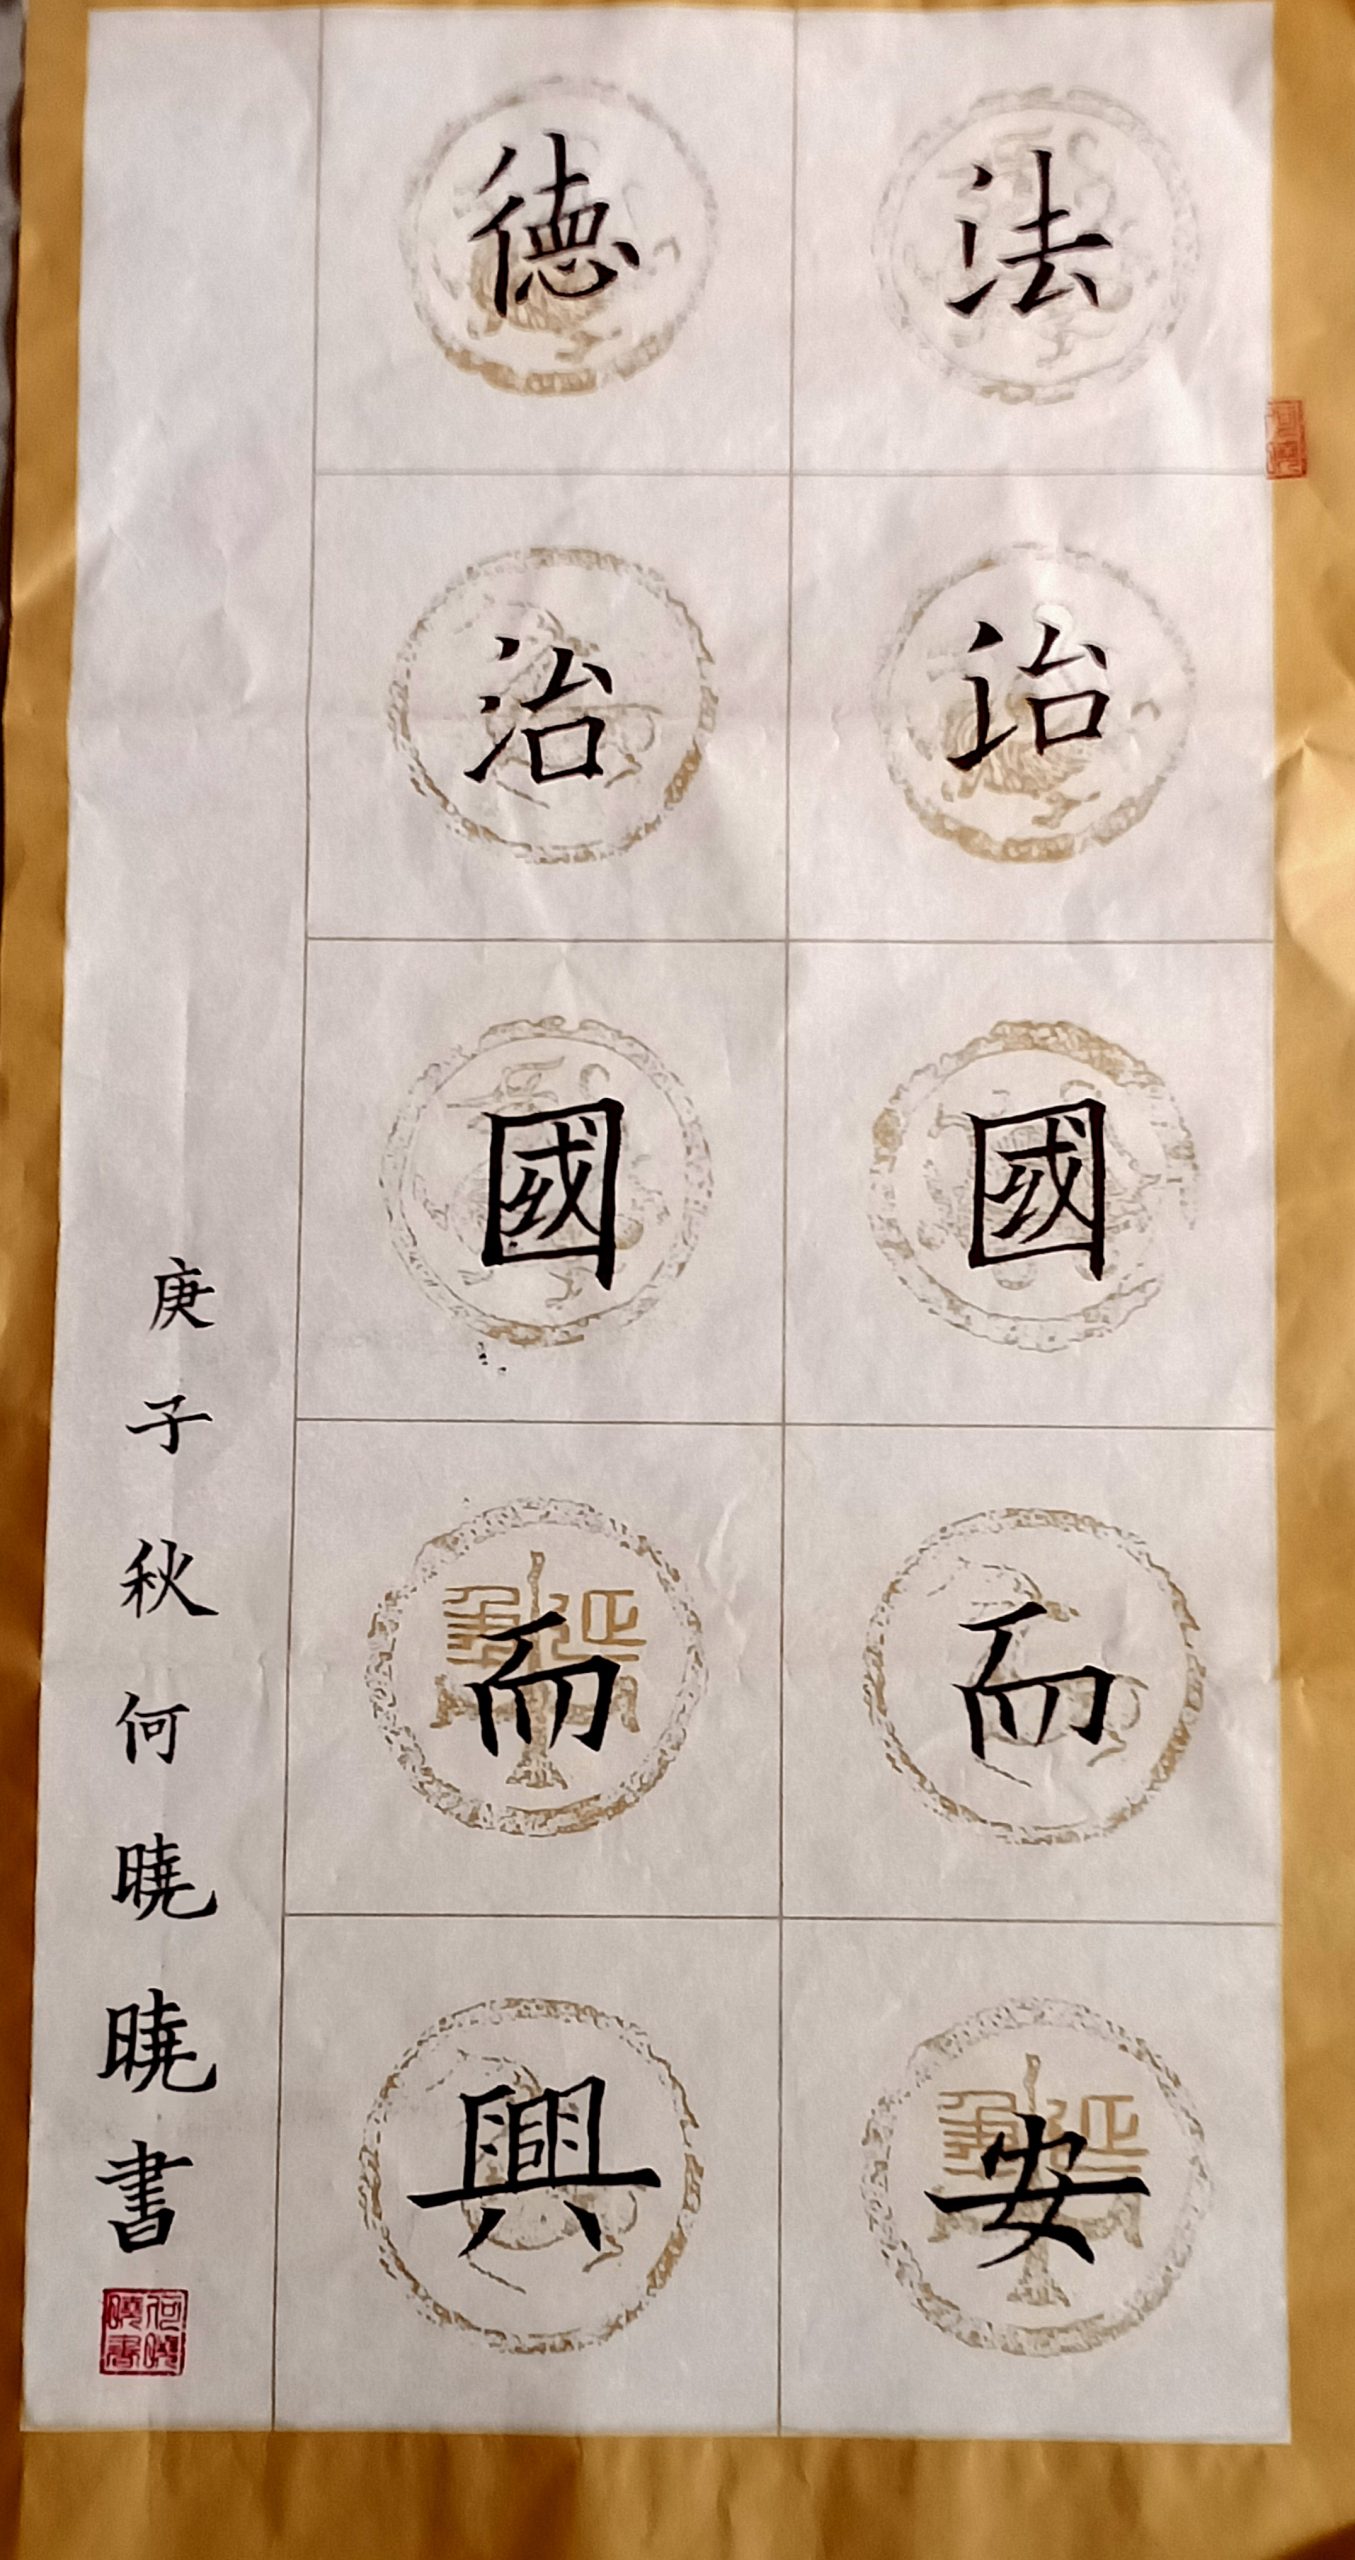 法治國而安
德治國而興
庚子秋何曉曉書
何曉曉書